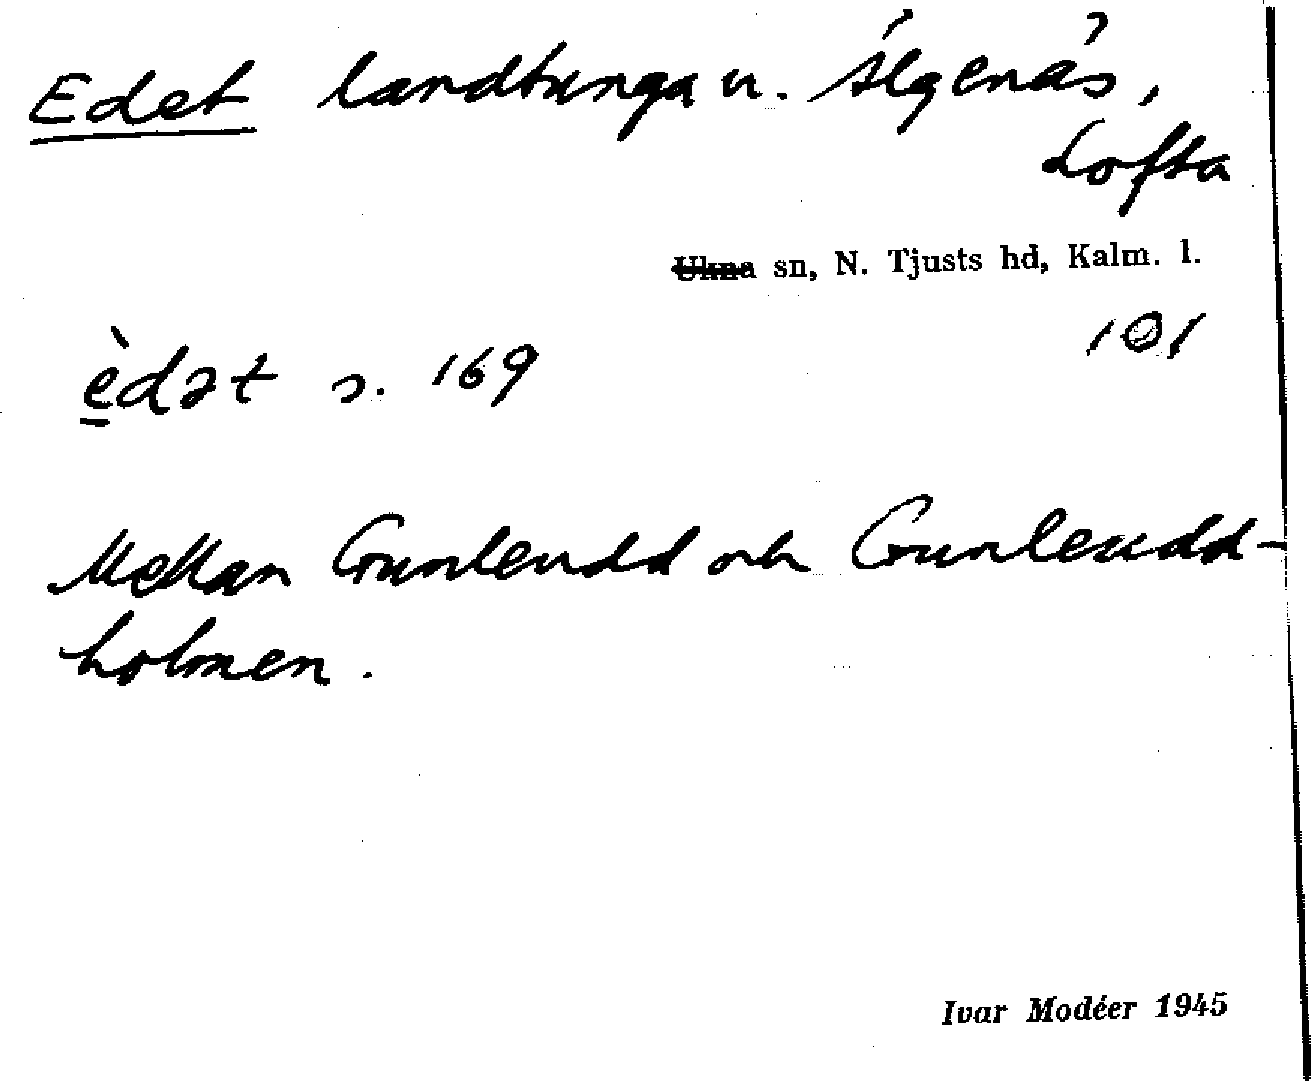 Edet landtunga u. Älgenäs,
Lofta
Ukna sn, N. Tjusts hd, Kalm. l.
101
è̱dət s. 169
Mellan Gunleudd och Gunleudd-
holmen.
Ivar Modéer 1945